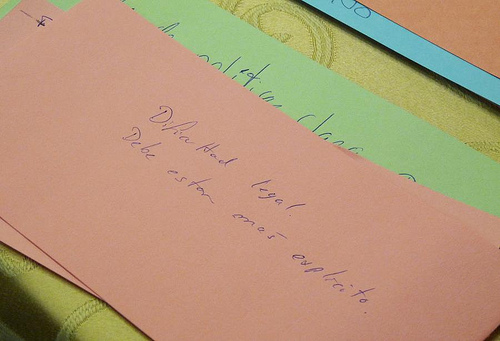 NO
de políticas claras
Dificultad legal.
Debe estar mas explicito.